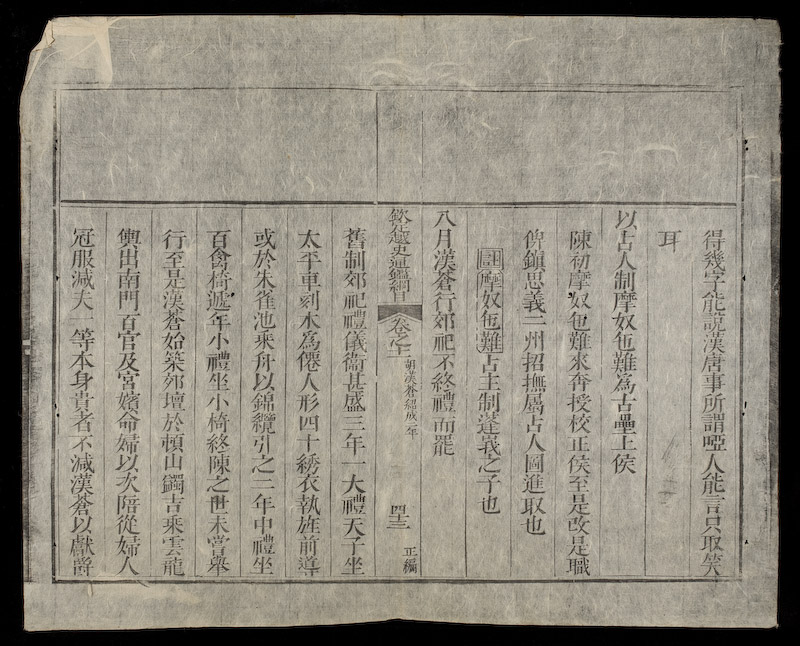 得幾字能說漢唐事所謂啞人能言只取笑
耳
以占人制摩奴㐌難為古壘上侯
陳初摩奴㐌難來奔授校正侯至是改是職
俾鎮思義二州招撫屬占人圖進取也
註摩奴㐌難占主制蓬峩之子也
八月漢蒼行郊祀不終禮而罷
欽定越史通鑑綱目 卷之十二 胡漢蒼紹成二年 四十三 正編
舊制郊祀禮儀衛甚盛三年一大禮天子坐
太平車刻木為僊人形四十綉衣執旌前導
或於朱雀池乘舟以錦纜引之二年中禮坐
百禽椅遞年小禮坐小椅終陳之世未嘗舉
行至是漢蒼始築郊壇於頓山蠲吉乘雲龍
輿出南門百官及宮嬪命婦以次陪從婦人
冠服減夫一等本身貴者不減漢蒼以獻爵